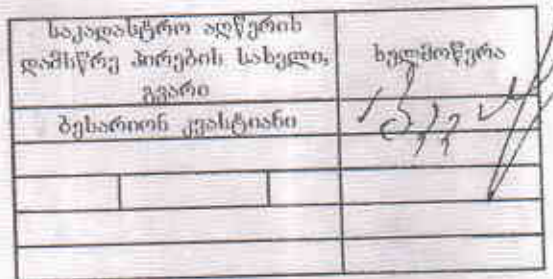 საკადასტრო აღწერის
დამსწრე პირების სახელი,
გვარი
ხელმოწერა
ბესარიონ კვასტიანი